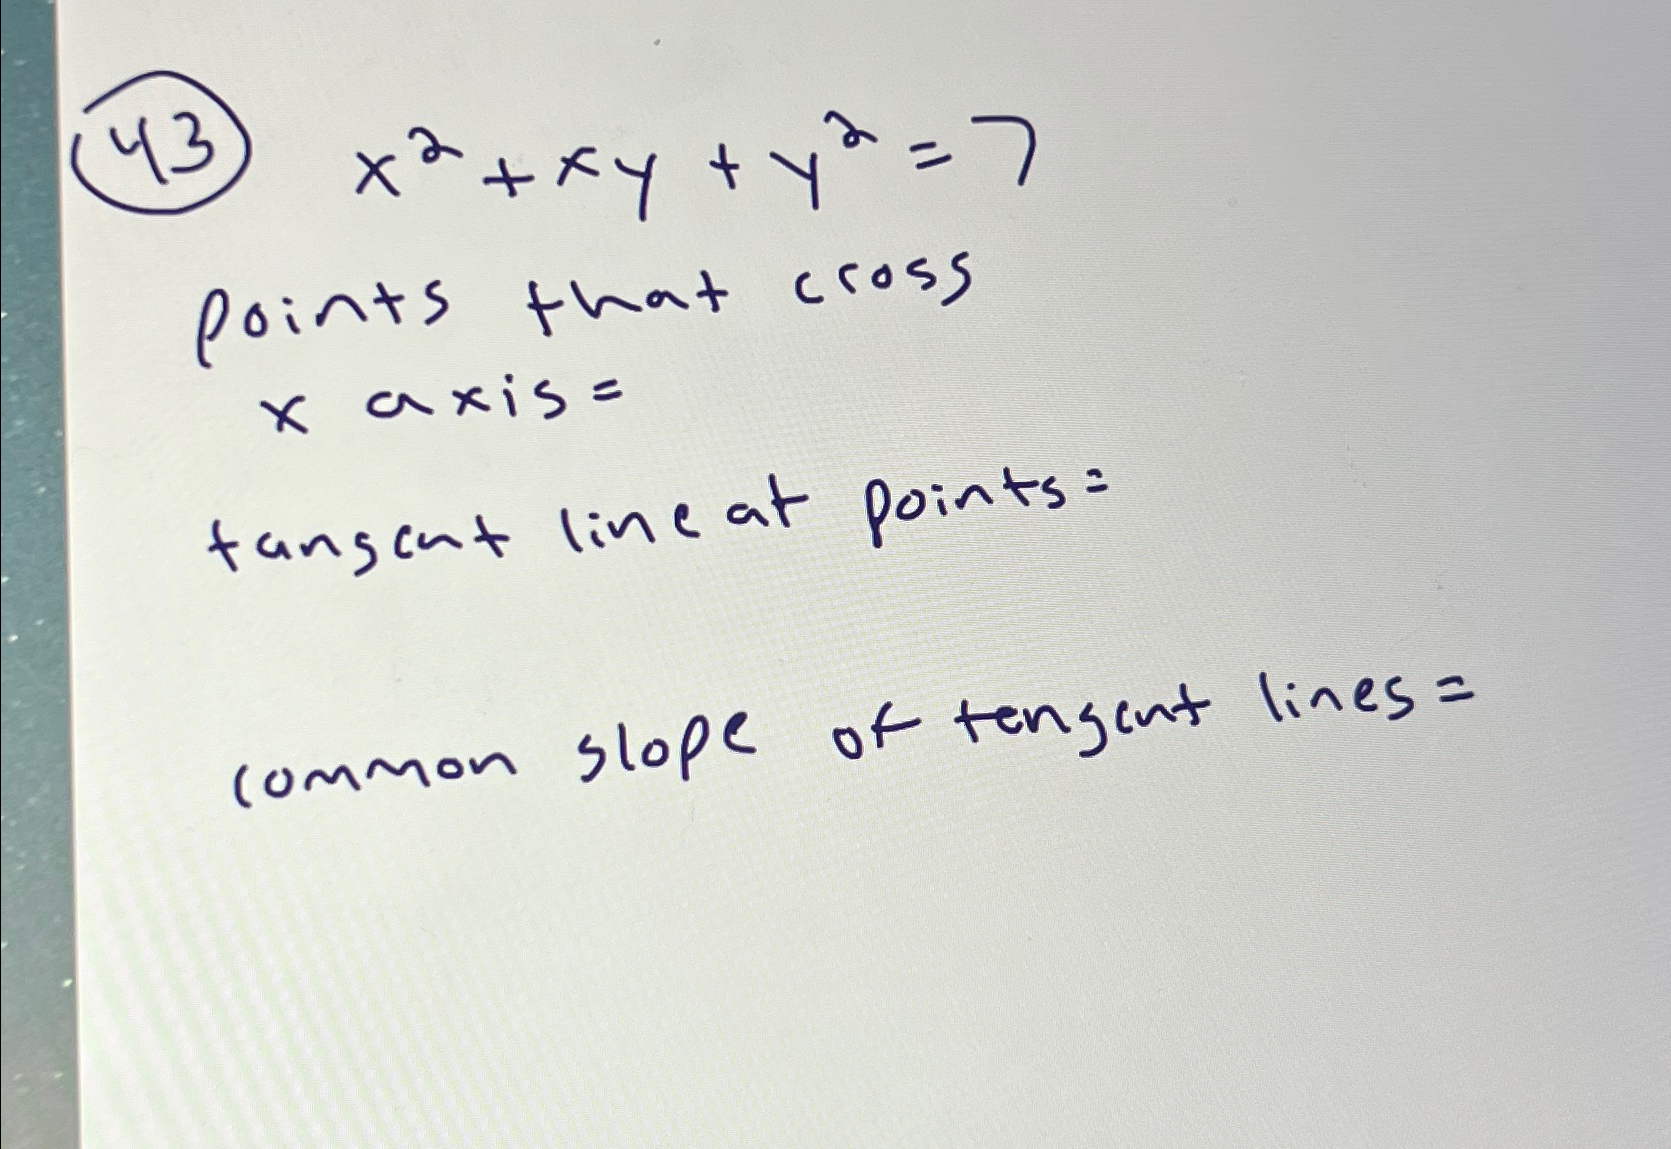 43 x² + xy + y² = 7
points that cross
x axis =
tangent line at points =
common slope of tengent lines =